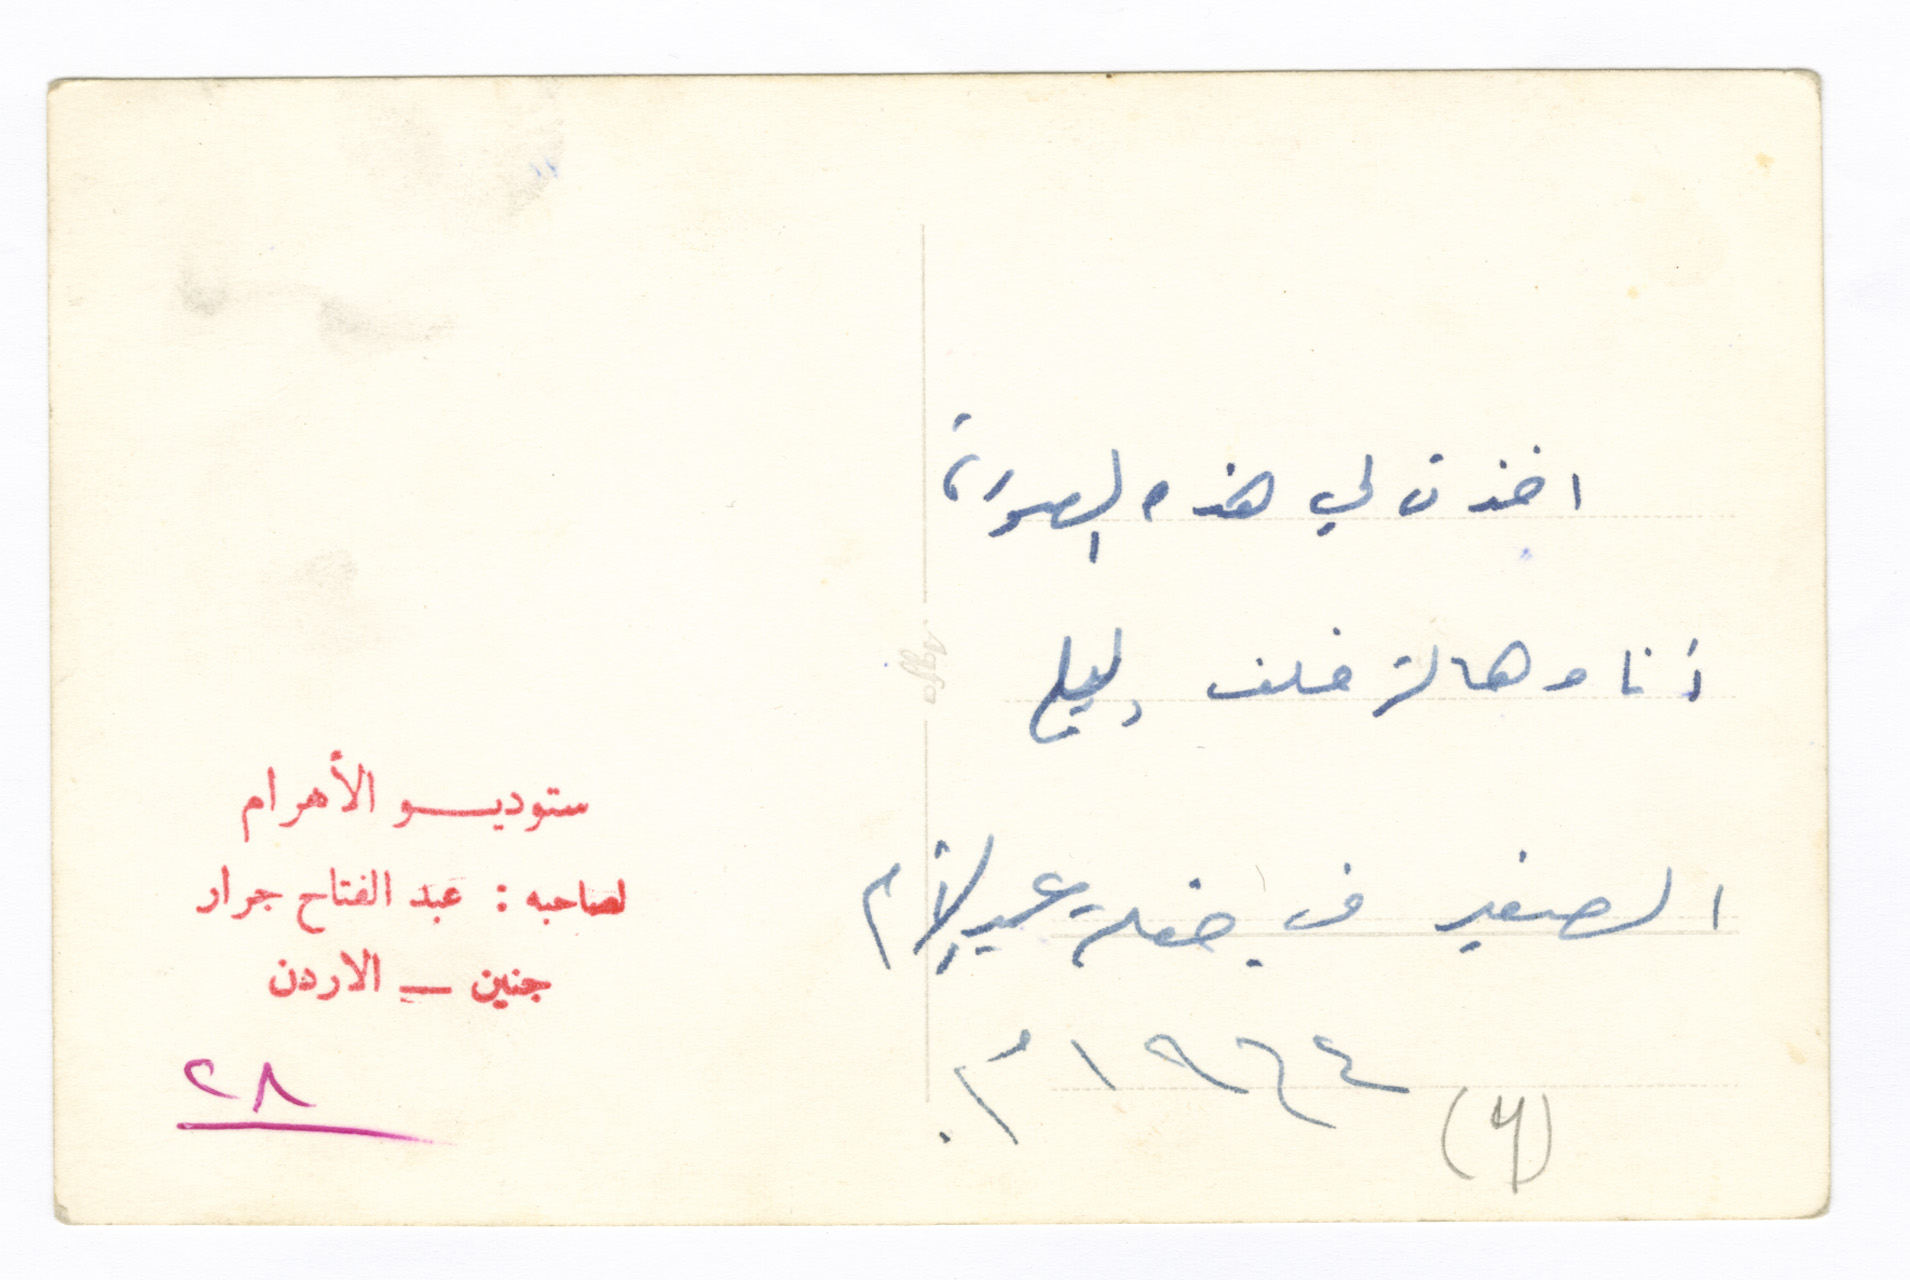 اخذت لي هذه الصورة
أنا وهالة خلف
الصغير في حفلة عيد الأم
١٩٦٤ م.
(٦)
Agfa
ستوديو الأهرام
لصاحبه : عبد الفتاح جرار
جنين – الاردن
٢٨